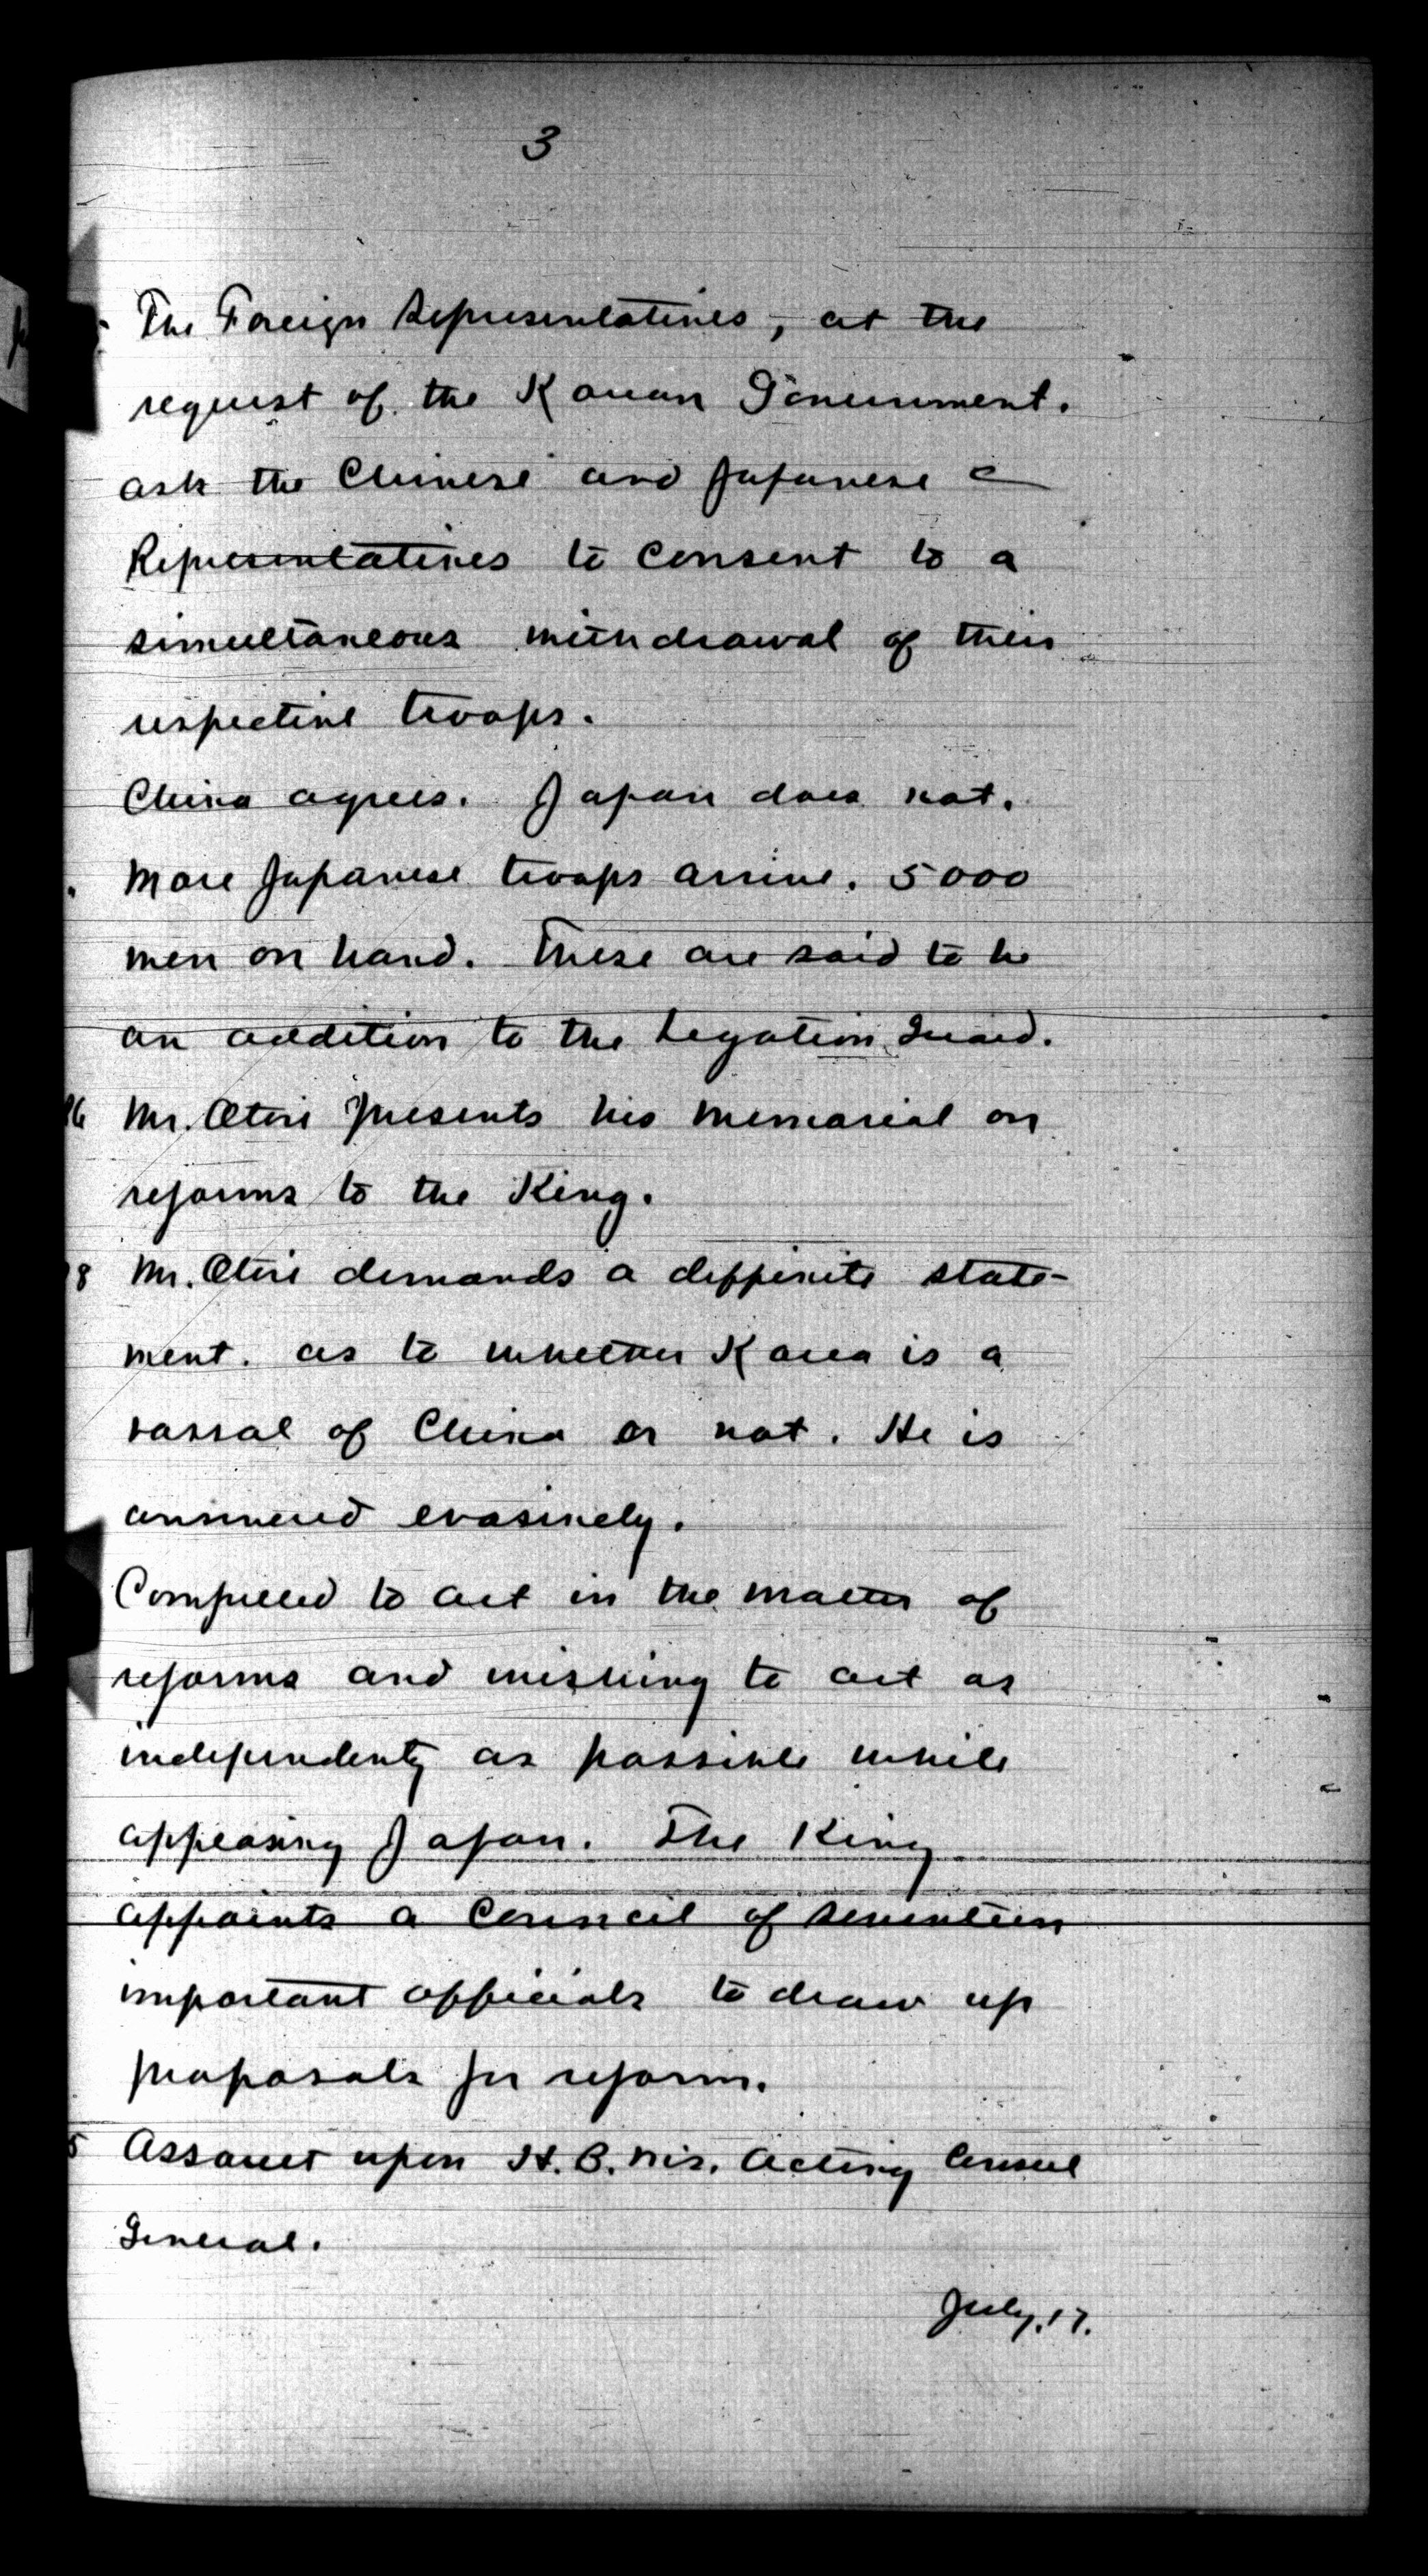 3
The Foreign Representatives, at the
request of the Korean Government.
ask the Chinese and Japanese
Representatives to consent to a
simultaneous withdrawal of their
respective troops.
China agrees. Japan does not.
More Japanese troops arrive. 5000
men on hand. These are said to be
an addition to the Legation Guard.
26 Mr. Otori presents his memorial on
reforms to the King.
28 Mr. Otori demands a deffinite state-
ment. as to whether Korea is a
vassal of China or not. He is
answered evasively.
Compelled to act in the matter of
reforms and wishing to act as
independently as possible while
appeasing Japan. The King
appoints a Council of seventeen
important officials to draw up
proposals for reform.
5 Assault upon H.B.M's. Acting Consul
General.
July. 17.